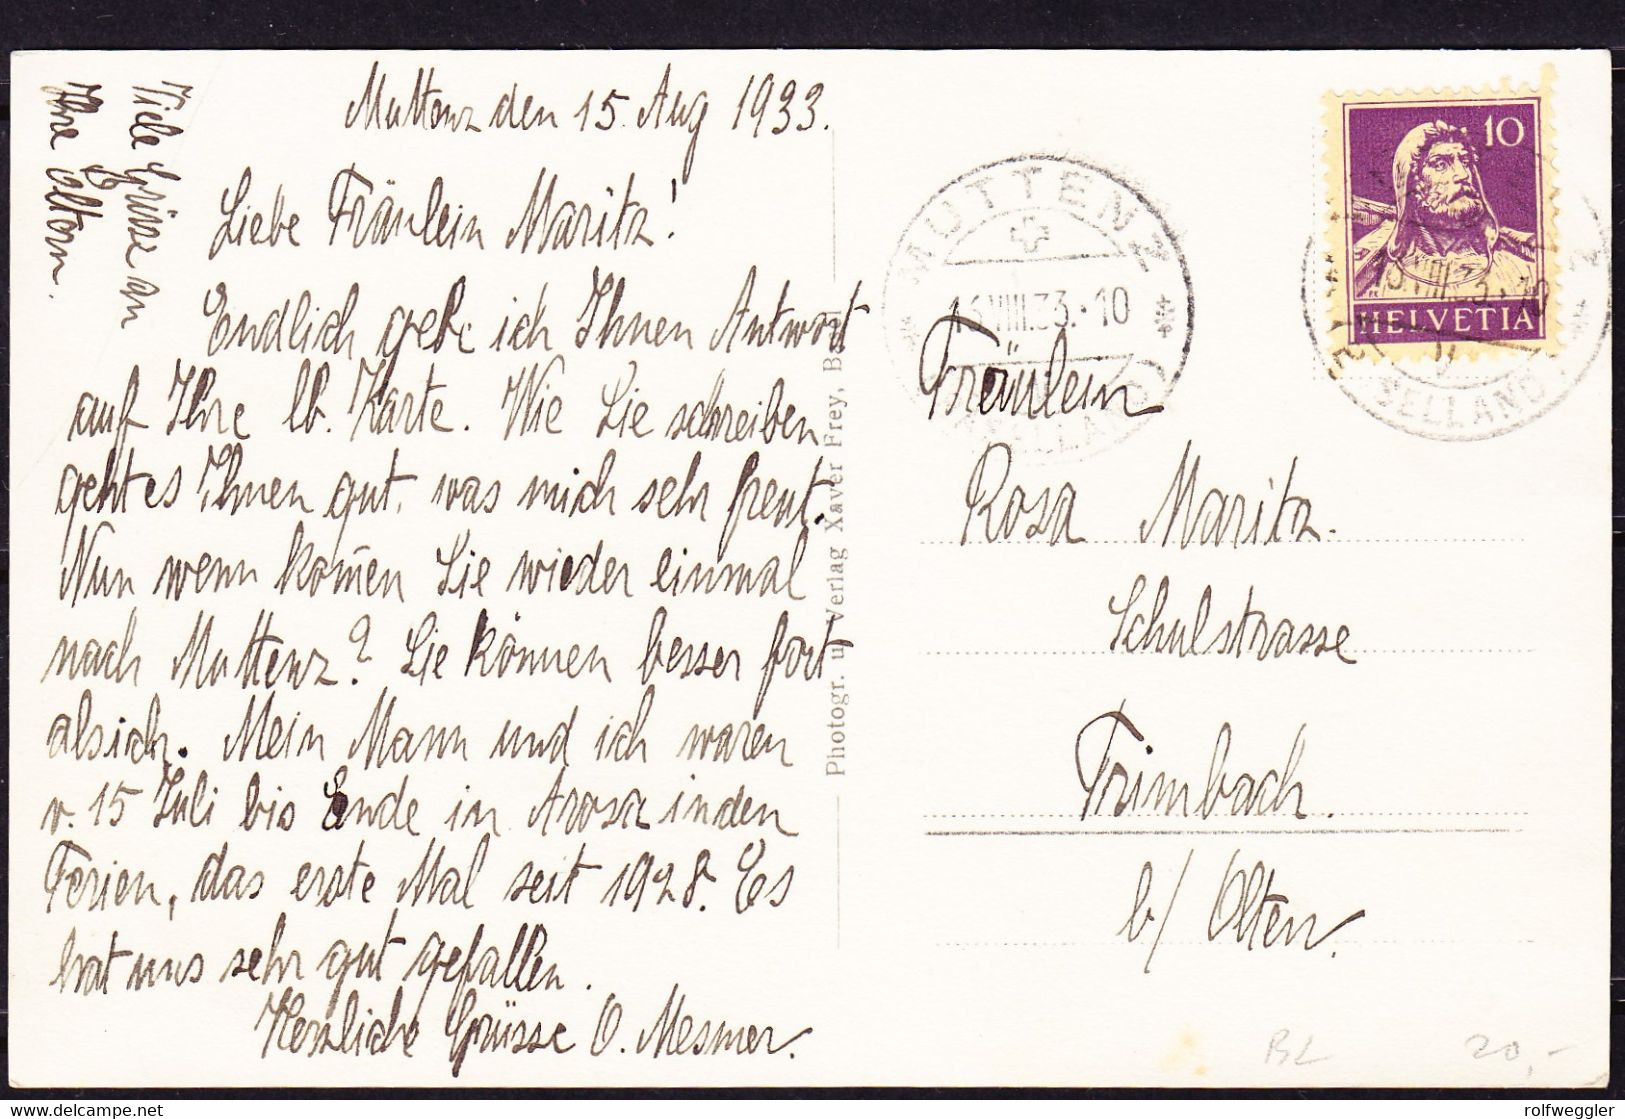 Muttenz den 15. Aug 1933.
Liebe Fräulein Maritz!
Endlich gebe ich Ihnen Antwort
auf Ihre lb. Karte. Wie Sie schreiben
geht es Ihnen gut, was mich sehr freut.
Nun wenn kom̄en Sie wieder einmal
nach Muttenz? Sie können besser fort
als ich. Mein Mann und ich waren
v. 15 Juli bis Ende in Arosa in den
Ferien, das erste Mal seit 1928. Es
hat uns sehr gut gefallen.
Herzliche Grüsse O. Mesmer.
Viele Grüsse an
Ihre Eltern.
Photogr. u. Verlag Xaver Frey, Basel
MUTTENZ
16.VIII.33.-10
10
HELVETIA
Fräulein
Rosa Maritz.
Schulstrasse
Trimbach.
b/ Olten.
BL 20,-
rolfweggler